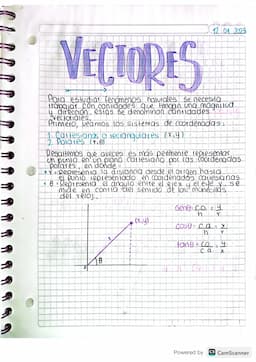 12 01 2023
VECTORES
Para estudiar fenómenos naturales se necesita
trabajar con cantidades que tengan una magnitud
y dirección, estas se denominan cantidades
vectoriales.
Primero, veamos los sistemas de coordenadas:
1. Cartesianas o rectangulares (x,y)
2. Polares (r,θ)
Resaltamos que a veces es más representar
un punto en un plano cartesiano por las coordenadas
polares, en donde:
• r: Representa la distancia desde el origen hasta
el punto representado en coordenadas cartesianas.
• θ: Representa el ángulo entre el eje x y el eje y, se
mide en contra del sentido de las manecillas
del reloj.
(x,y)
r
θ
senθ: co : y
h r
cosθ: ca : x
h r
tanθ: co : y
ca x
Powered by CS CamScanner